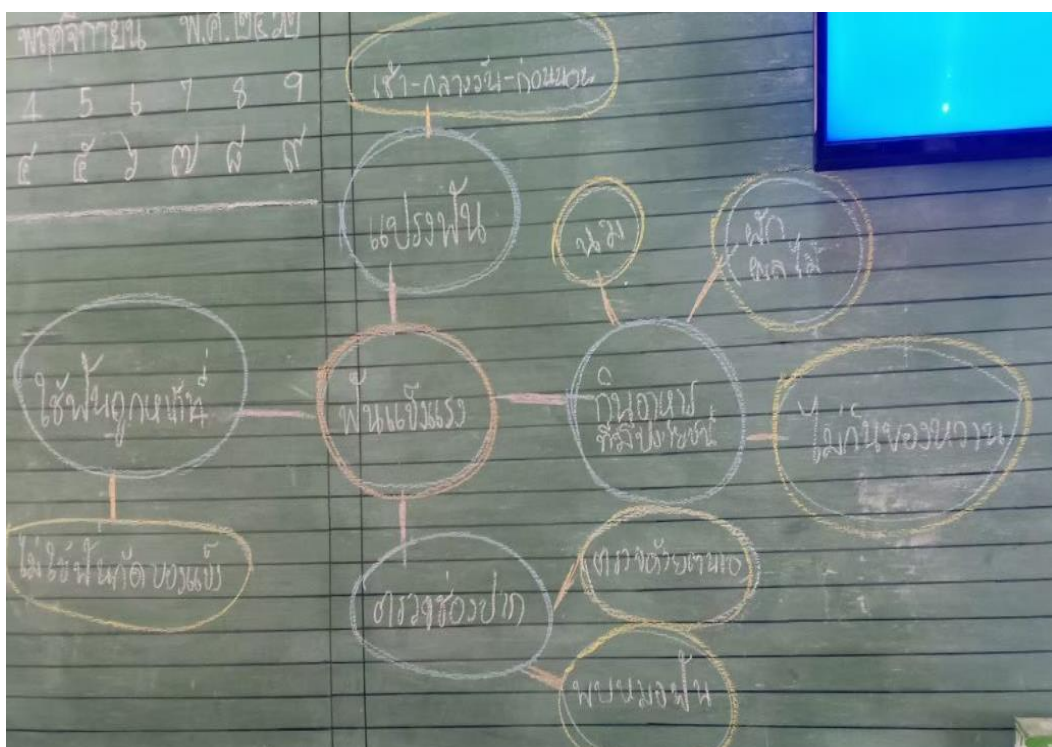 พฤศจิกายน พ.ศ.๒๕๖๒
4 5 6 7 8 9
๔ ๕ ๖ ๗ ๘ ๙
เช้า-กลางวัน-ก่อนนอน
แปรงฟัน
นม
ผัก
ผลไม้
ใช้ฟันถูกหน้าที่
ฟันแข็งแรง
กินอาหาร
ที่มีประโยชน์
ไม่กินของหวาน
ไม่ใช้ฟันกัดของแข็ง
ตรวจช่องปาก
ตรวจด้วยตนเอง
พบหมอฟัน